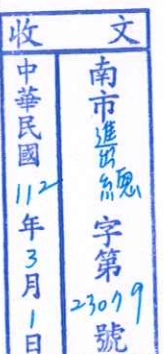 收文
南市進出總字第23079號
中華民國112年3月1日